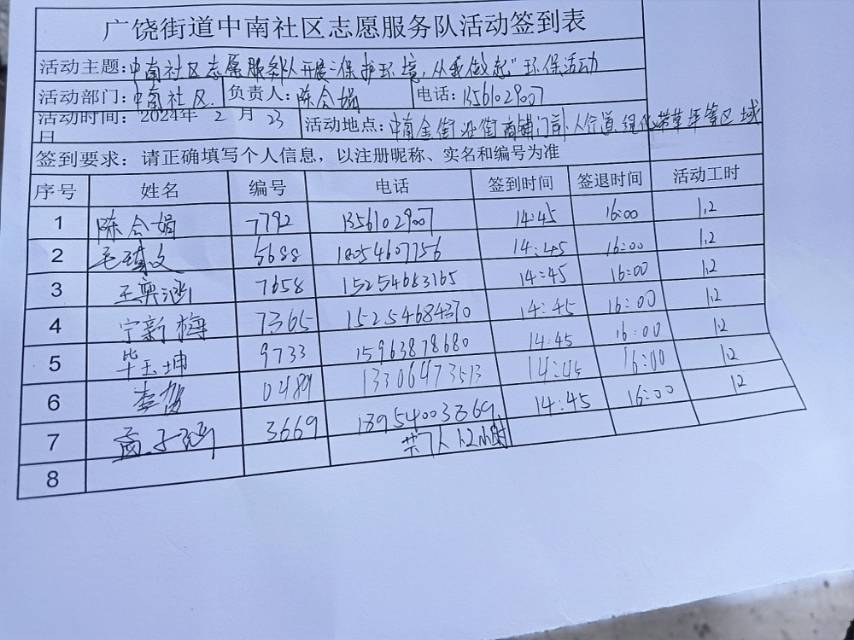 广饶街道中南社区志愿服务队活动签到表
活动主题：中南社区志愿服务队开展“保护环境，从我做起”环保活动
活动部门：中南社区 负责人：陈会娟 电话：13561029007
活动时间：2024年 2 月 23 日 活动地点：中南金街沿街商铺门口人行道绿化带草坪等区域
签到要求：请正确填写个人信息，以注册昵称、实名和编号为准
序号 姓名 编号 电话 签到时间 签退时间 活动工时
1 陈会娟 7792 13561029007 14:45 16:00 1.2
2 5688 18054607756 14:45 16:00 1.2
3 7658 15254683165 14:45 16:00 1.2
4 宁新梅 7365 15254684370 14:45 16:00 1.2
5 毕玉坤 9733 15963878680 14:45 16:00 1.2
6 0489 13306473513 14:45 16:00 1.2
7 3669 18954003869 14:45 16:00 1.2
8 共7人 1.2小时